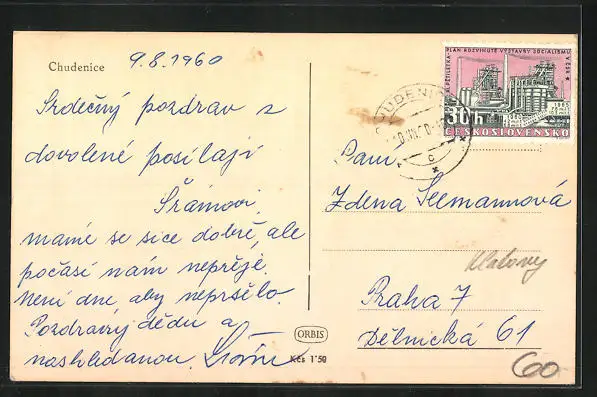 Chudenice
9.8.1960
Srdečný pozdrav z
dovolené posílají
Šrámovi,
máme se sice dobře, ale
počasí nám nepřeje.
Není dne, aby nepršelo.
Pozdravuj dědu a
nashledanou.
ORBIS
Kčs 1'50
PĚTILETKA - PLÁN ROZVINUTÉ VÝSTAVBY SOCIALISMU V ČSR
30h
1965
ČESKOSLOVENSKO
CHUDENICE
Paní
Zdena Seemannová
Klatovy
Praha 7
Dělnická 61
60